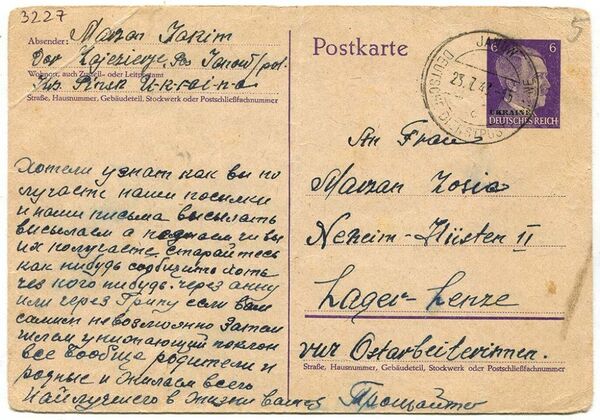 3227
5
Absender: Marzan Iakim
Dor Kajezieyze, Ps Janow/pol.
Wohnort, auch Zustell- oder Leitpostamt
Pinsk Ukraina
Straße, Hausnummer, Gebäudeteil, Stockwerk oder Postschließfachnummer
Postkarte
6 6
UKRAINE
DEUTSCHES REICH
DEUTSCHE DIENSTPOST UKRAINE
23.7.42
c
An Frau
Marzan Zosia
Neheim-Hüsten II
Lager-Lenze
Ostarbeiterinnen.
Straße, Hausnummer, Gebäudeteil, Stockwerk oder Postschließfachnummer
Хотели узнат как вы по
лучаете наши посилки
и наши письма высылать
висылаем а чи вы
их получаете, старайтесь
как нибудь сообщить хоть
чез кого нибудь. через анну
или через Грипу если вам
самим невозможно Затем
шлем унижающий поклон
все вообще родители и
родные и желаем всего
найлучшего в жизни вашей Прощайте